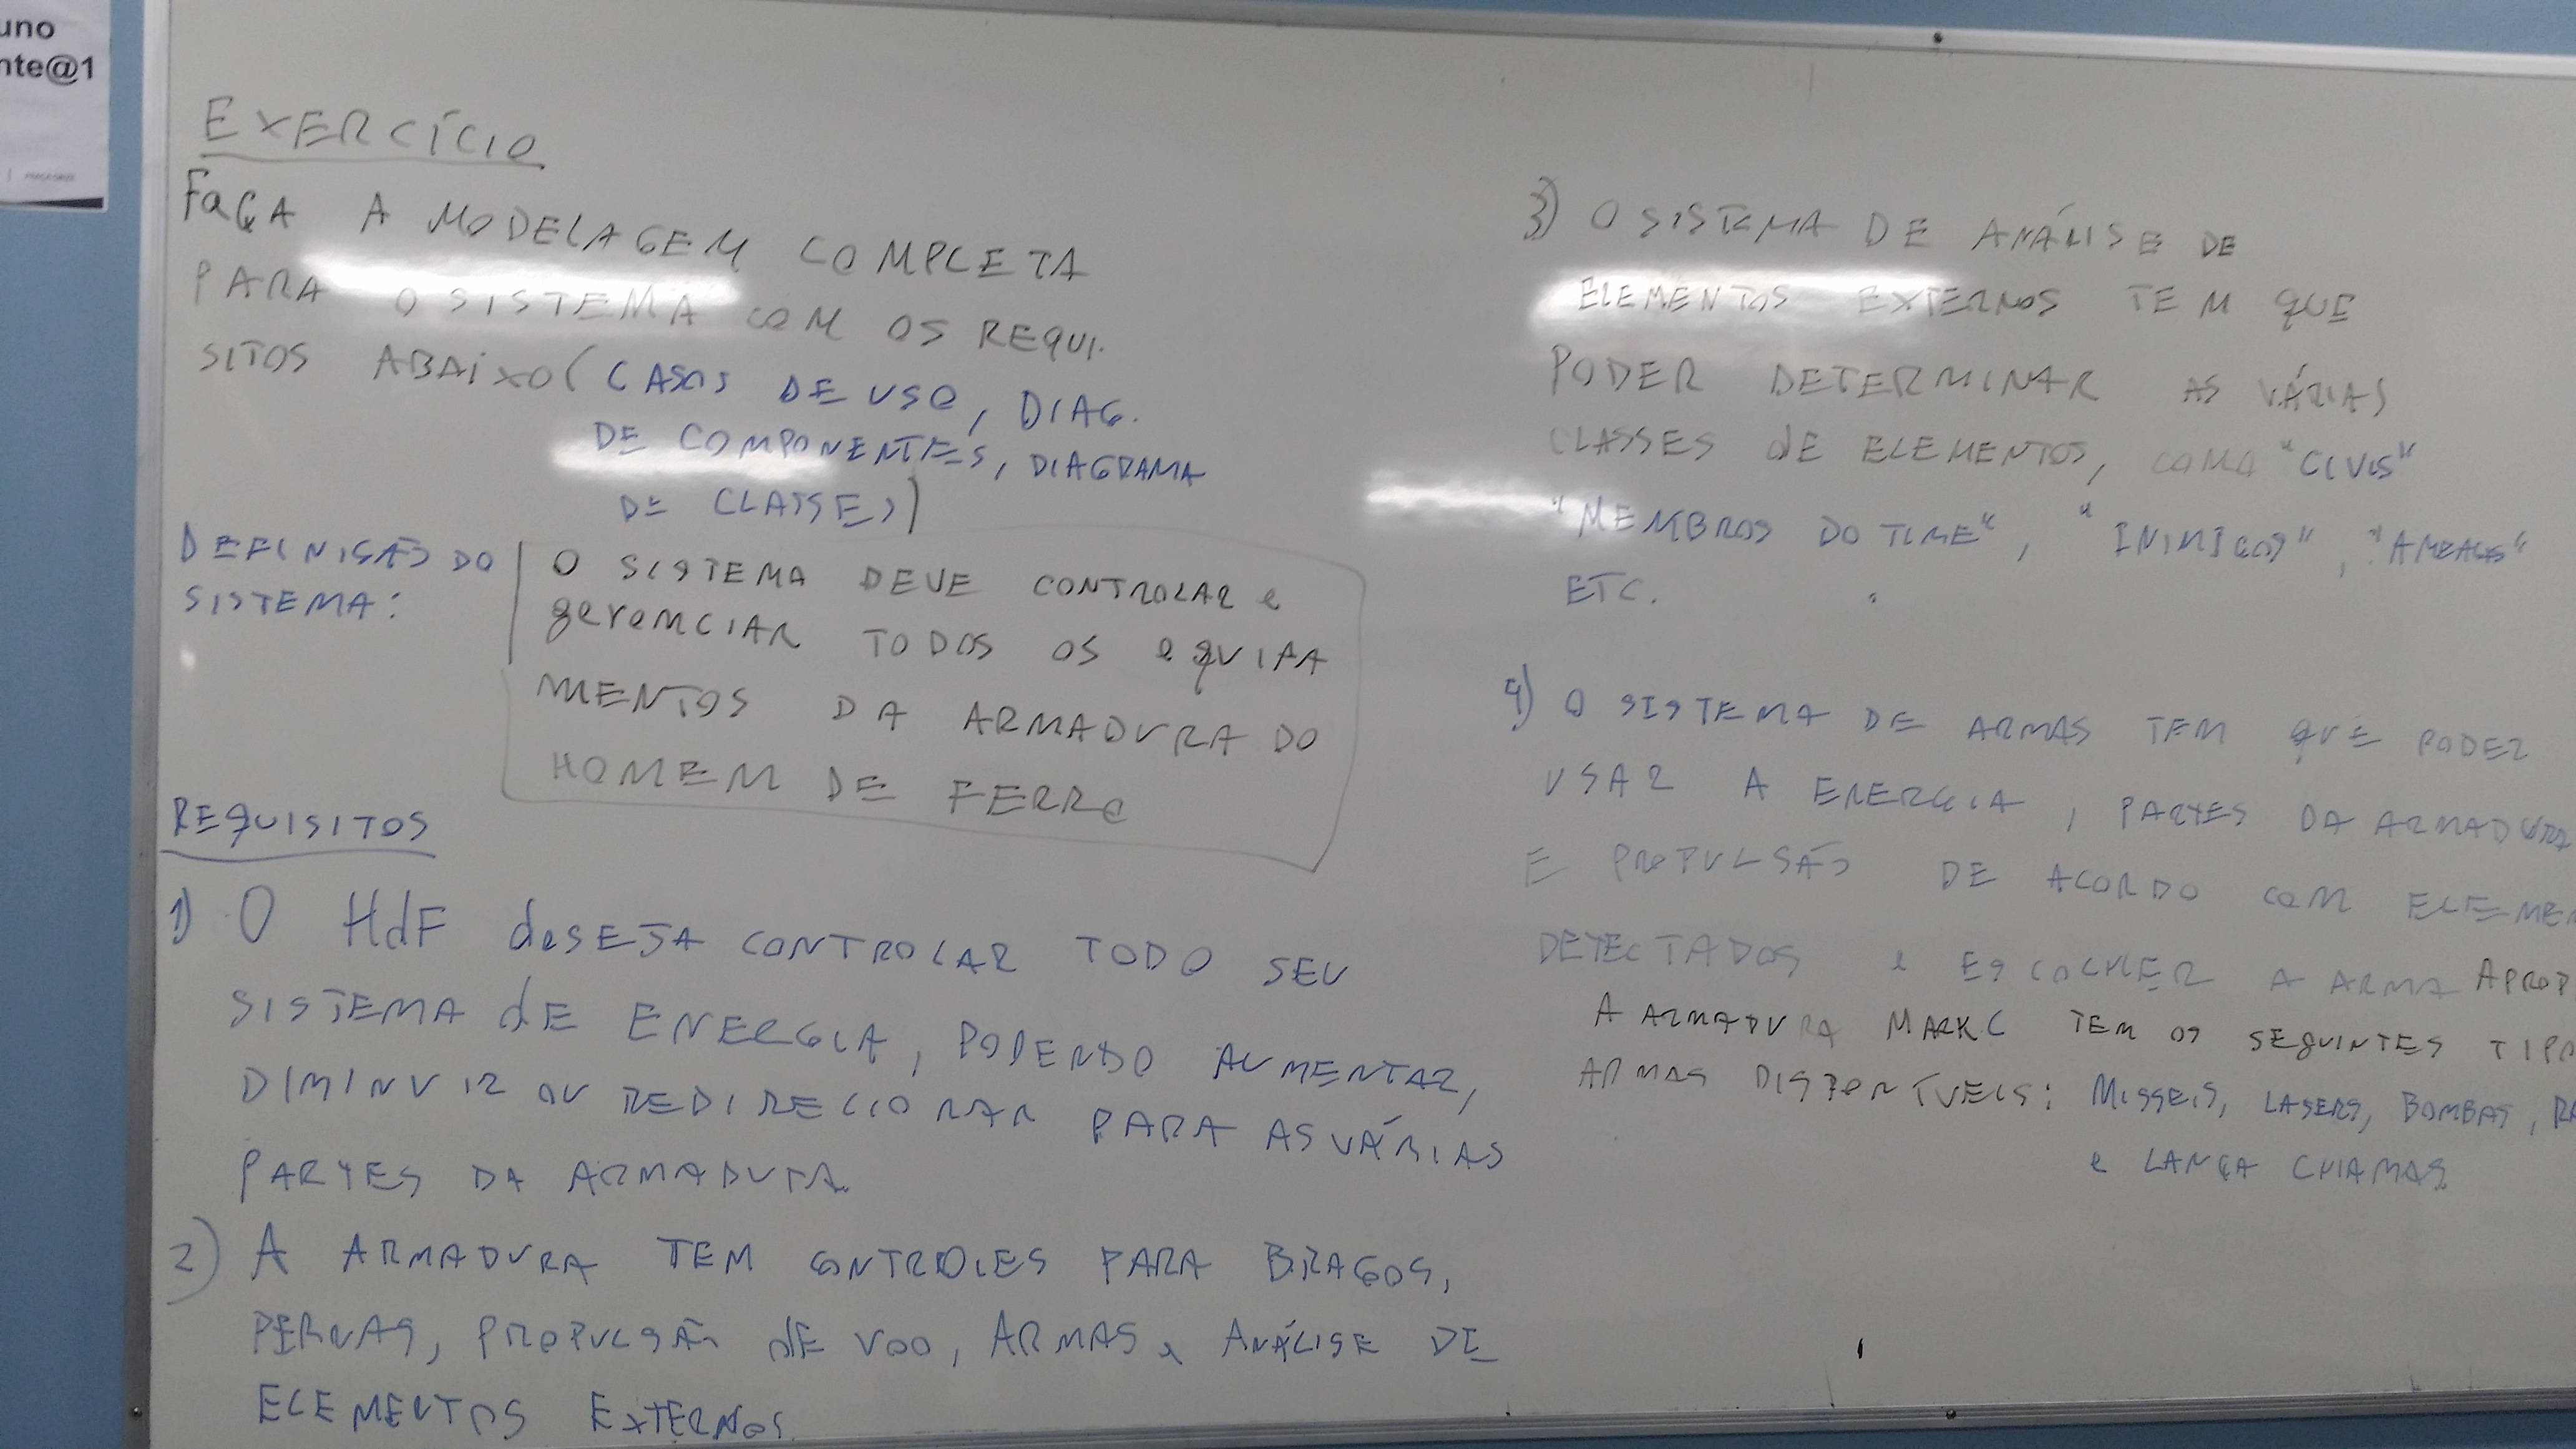 uno
nte@1
EXERCÍCIO
FAÇA A MODELAGEM COMPLETA
PARA O SISTEMA COM OS REQUI-
SITOS ABAIXO (CASOS DE USO, DIAG.
DE COMPONENTES, DIAGRAMA
DE CLASSES)
DEFINIÇÃO DO
SISTEMA:
O SISTEMA DEVE CONTROLAR e
gerenCIAR TODOS OS eQUIPA
MENTOS DA ARMADURA DO
HOMEM DE FERRO
REQUISITOS
1) O HdF deSEJA CONTROLAR TODO SEU
SISTEMA dE ENERGIA, PODENDO AUMENTAR,
DIMINUIR OU REDIRECIONAR PARA AS VÁRIAS
PARTES DA ARMADURA.
2) A ARMADURA TEM CONTROLES PARA BRAÇOS,
PERNAS, PROPULSÃO dE VOO, ARMAS e ANÁLISE DE
ELEMENTOS EXTERNOS.
3) O SISTEMA DE ANÁLISE DE
ELEMENTOS EXTERNOS TEM QUE
PODER DETERMINAR AS VÁRIAS
CLASSES dE ELEMENTOS, COMO "CIVIS"
"MEMBROS DO TIME", "INIMIGOS", "AMEAÇAS"
ETC.
4) O SISTEMA DE ARMAS TEM QUE PODER
USAR A ENERGIA, PARTES DA ARMADURA
E PROPULSÃO DE ACORDO COM ELEMEN
DETECTADOS e ESCOLHER A ARMA APROP
A ARMADURA MARK C TEM OS SEGUINTES TIPO
ARMAS DISPONÍVEIS: MISSEIS, LASERS, BOMBAS, RA
e LANÇA CHAMAS.